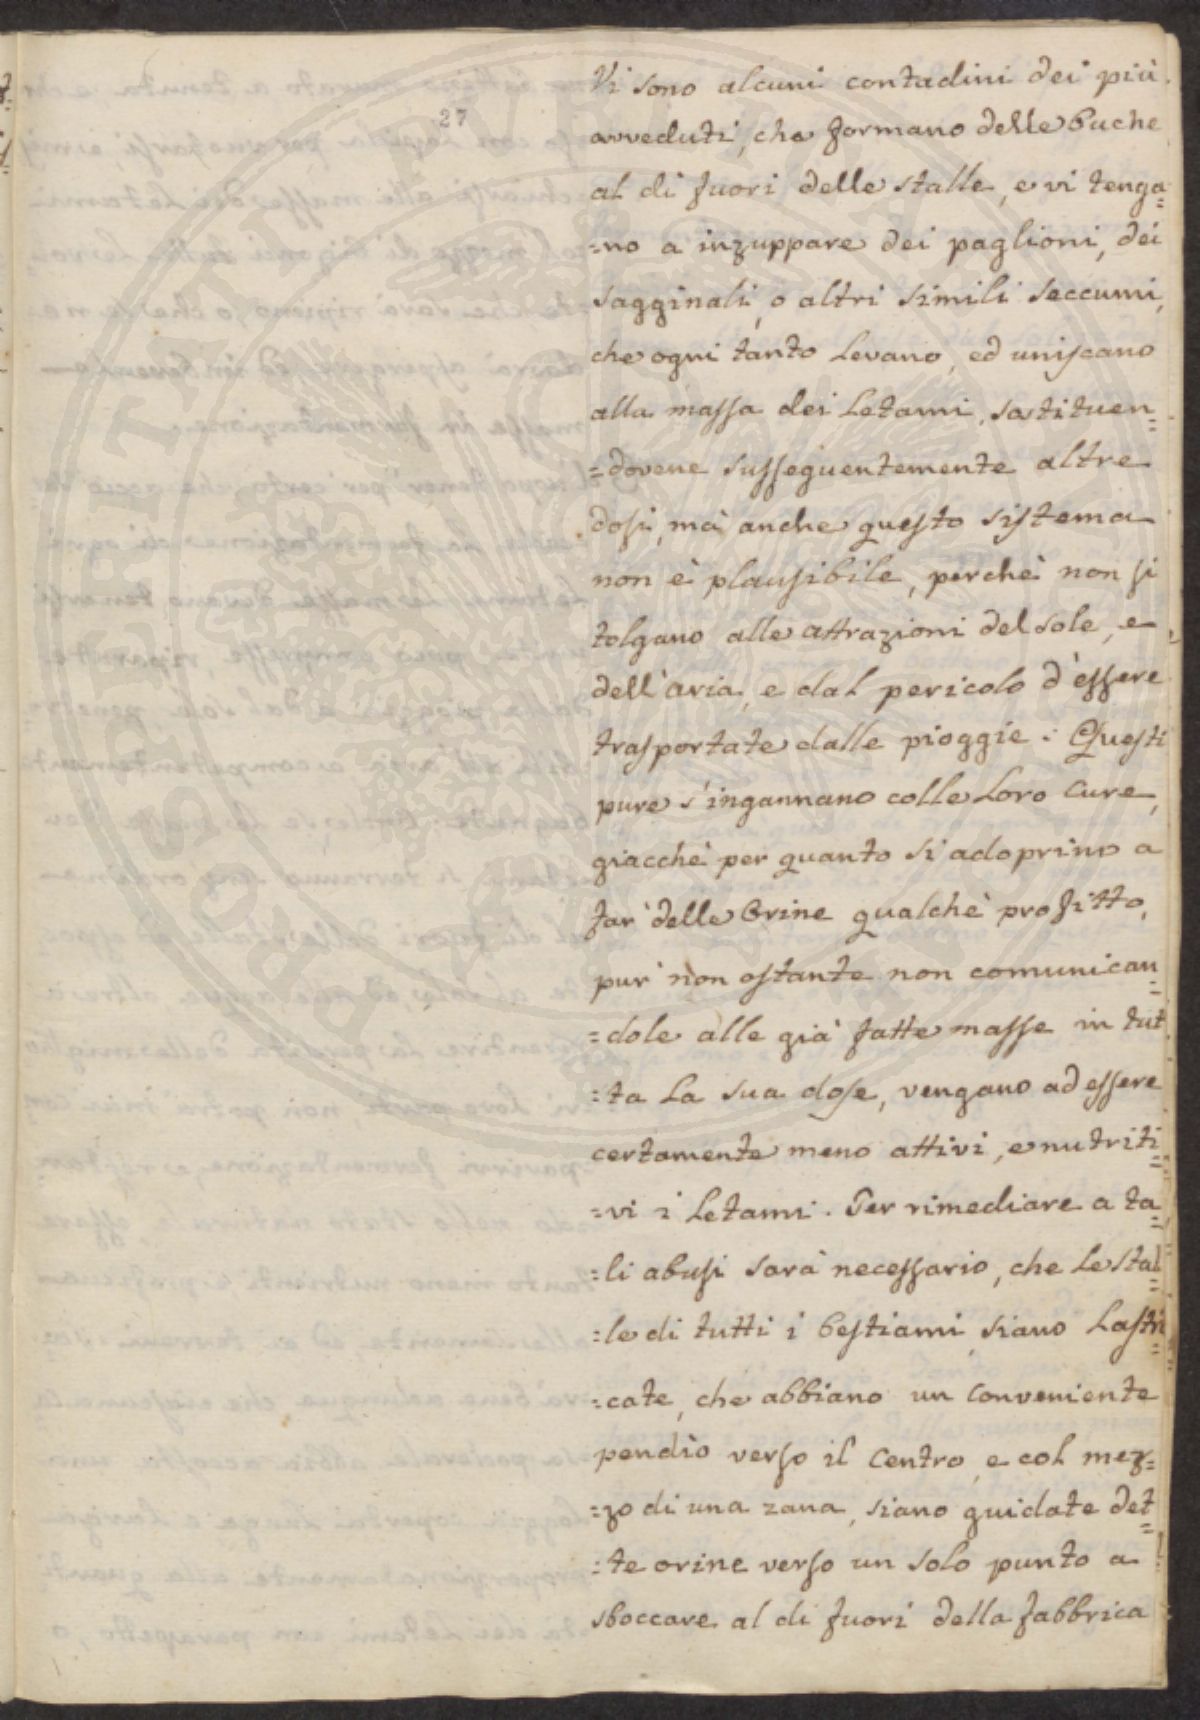 27
Vi sono alcuni contadini dei più
avveduti, che formano delle buche
al di fuori delle stalle, e vi tenga=
=no a inzuppare dei paglioni, dei
sagginali, o altri simili seccumi,
che ogni tanto Levano, ed uniscano
alla massa dei Letami, sostituen=
=dovene susseguentemente altre
dosi, mà anche questo sistema
non è plausibile, perchè non si
tolgano alle attrazioni del sole, e
dell'aria, e dal pericolo d'essere
trasportate dalle pioggie. Questi
pure s'ingannano colle Loro Cure,
giacchè per quanto si adoprino a
far' delle Orine qualchè profitto,
pur' non ostante non comunican=
=dole alle già fatte masse in tut=
=ta La sua dose, vengano ad essere
certamente meno attivi, e nutriti=
=vi i Letami. Per rimediare a ta=
=li abusi sarà necessario, che Le stal=
=le di tutti i bestiami, siano Lastri=
=cate, che abbiano un Conveniente
pendìo verso il Centro, e col mez=
=zo di una zana, siano guidate det=
=te orine verso un solo punto a
sboccare al di fuori della fabbrica
PROSPERITATI PUBLICAE AUGENDAE